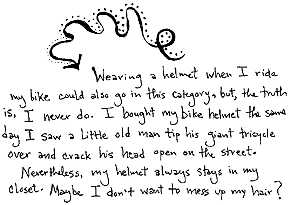 Wearing a helmet when I ride
my bike could also go in this category, but, the truth
is, I never do. I bought my bike helmet the same
day I saw a little old man tip his giant tricycle
over and crack his head open on the street.
Nevertheless, my helmet always stays in my
closet. Maybe I don't want to mess up my hair?